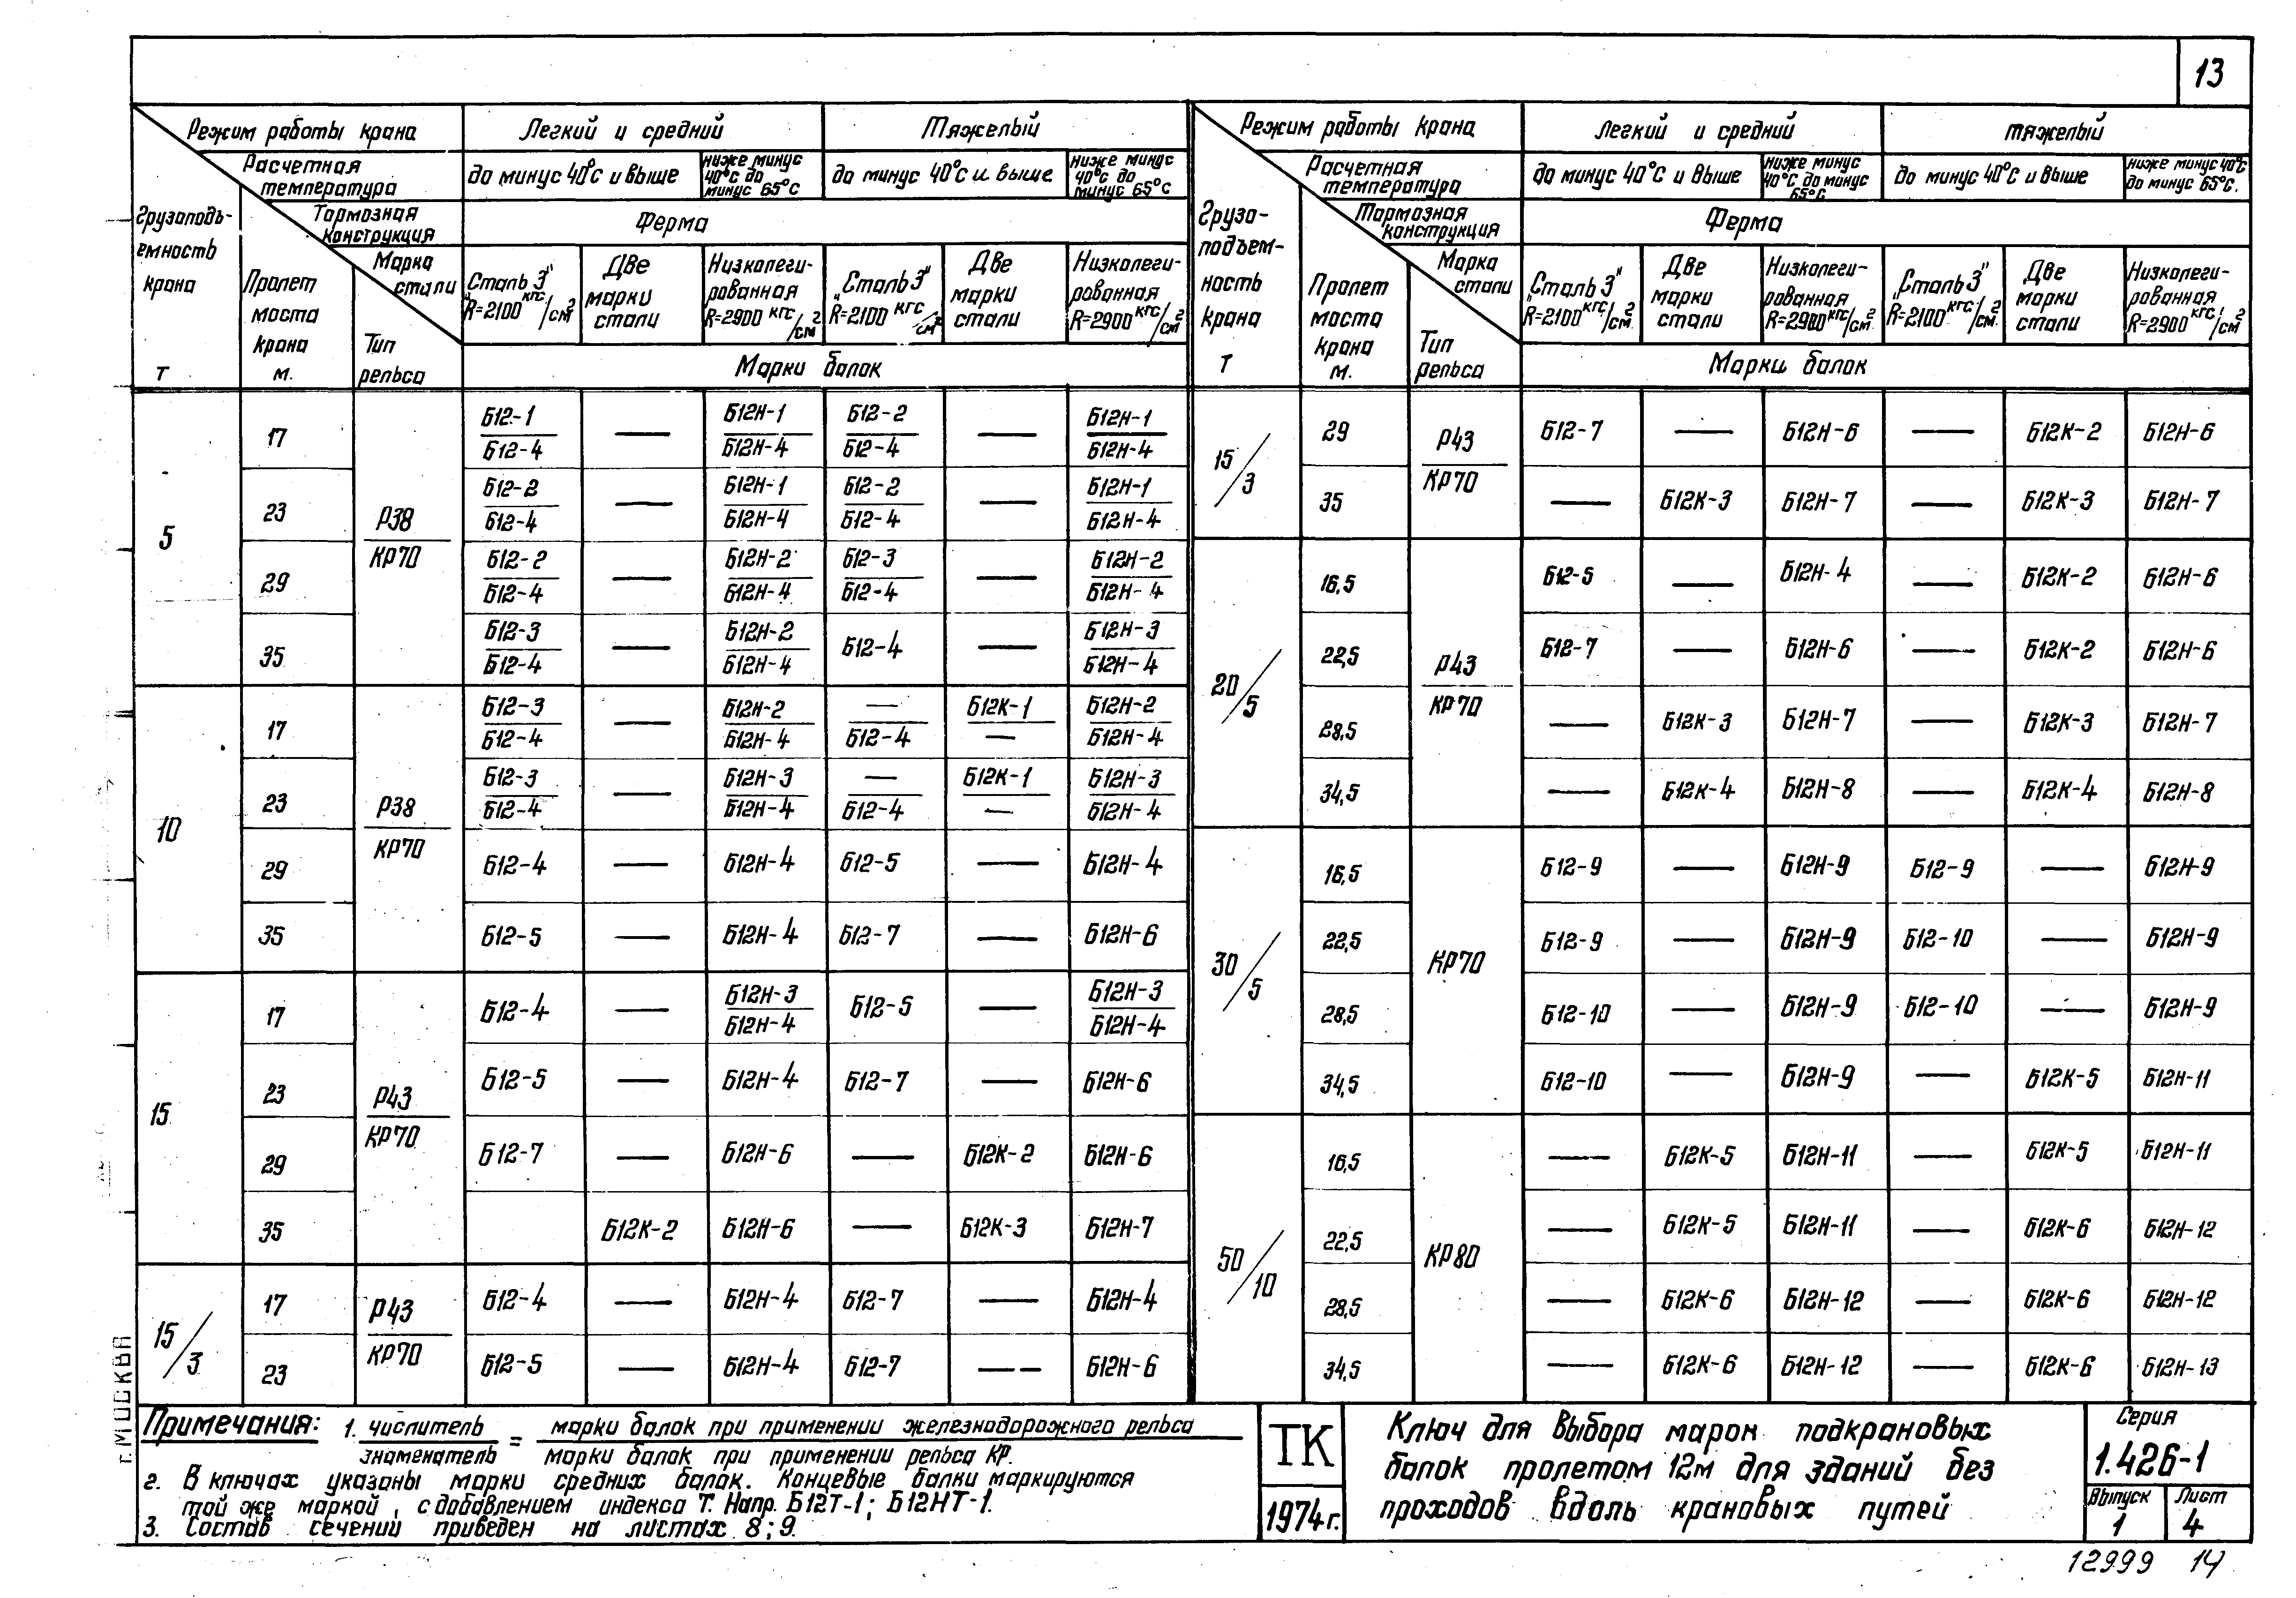 13
Режим работы крана | Легкий и средний | Тяжелый
Расчетная температура | до минус 40°С и выше | ниже минус 40°С до минус 65°С | до минус 40°С и выше | ниже минус 40°С до минус 65°С
Тормозная конструкция | Ферма
Грузоподъемность крана т | Пролет моста крана м. | Тип рельса | Марка стали | „Сталь 3" R=2100 кгс/см² | Две марки стали | Низколегированная R=2900 кгс/см² | „Сталь 3" R=2100 кгс/см² | Две марки стали | Низколегированная R=2900 кгс/см²
Марки балок
5 | 17 | Р38/КР70 | Б12-1/Б12-4 | — | Б12Н-1/Б12Н-4 | Б12-2/Б12-4 | — | Б12Н-1/Б12Н-4
23 | Б12-2/Б12-4 | — | Б12Н-1/Б12Н-4 | Б12-2/Б12-4 | — | Б12Н-1/Б12Н-4
29 | Б12-2/Б12-4 | — | Б12Н-2/Б12Н-4 | Б12-3/Б12-4 | — | Б12Н-2/Б12Н-4
35 | Б12-3/Б12-4 | — | Б12Н-2/Б12Н-4 | Б12-4 | — | Б12Н-3/Б12Н-4
10 | 17 | Р38/КР70 | Б12-3/Б12-4 | — | Б12Н-2/Б12Н-4 | —/Б12-4 | Б12К-1/— | Б12Н-2/Б12Н-4
23 | Б12-3/Б12-4 | — | Б12Н-3/Б12Н-4 | —/Б12-4 | Б12К-1/— | Б12Н-3/Б12Н-4
29 | Б12-4 | — | Б12Н-4 | Б12-5 | — | Б12Н-4
35 | Б12-5 | — | Б12Н-4 | Б12-7 | — | Б12Н-6
15 | 17 | Р43/КР70 | Б12-4 | — | Б12Н-3/Б12Н-4 | Б12-5 | — | Б12Н-3/Б12Н-4
23 | Б12-5 | — | Б12Н-4 | Б12-7 | — | Б12Н-6
29 | Б12-7 | — | Б12Н-6 | — | Б12К-2 | Б12Н-6
35 | Б12К-2 | Б12Н-6 | — | Б12К-3 | Б12Н-7
15/3 | 17 | Р43/КР70 | Б12-4 | — | Б12Н-4 | Б12-7 | — | Б12Н-4
23 | Б12-5 | — | Б12Н-4 | Б12-7 | — — | Б12Н-6
Режим работы крана | Легкий и средний | тяжелый
Расчетная температура | до минус 40°С и выше | ниже минус 40°С до минус 65°С | до минус 40°С и выше | ниже минус 40°С до минус 65°С.
Тормозная конструкция | Ферма
Грузоподъемность крана т | Пролет моста крана м. | Тип рельса | Марка стали | „Сталь 3" R=2100 кгс/см² | Две марки стали | Низколегированная R=2900 кгс/см² | „Сталь 3" R=2100 кгс/см² | Две марки стали | Низколегированная R=2900 кгс/см²
Марки балок
15/3 | 29 | Р43/КР70 | Б12-7 | — | Б12Н-6 | — | Б12К-2 | Б12Н-6
35 | — | Б12К-3 | Б12Н-7 | — | Б12К-3 | Б12Н-7
20/5 | 16,5 | Р43/КР70 | Б12-5 | — | Б12Н-4 | — | Б12К-2 | Б12Н-6
22,5 | Б12-7 | — | Б12Н-6 | — | Б12К-2 | Б12Н-6
28,5 | — | Б12К-3 | Б12Н-7 | — | Б12К-3 | Б12Н-7
34,5 | — | Б12К-4 | Б12Н-8 | — | Б12К-4 | Б12Н-8
30/5 | 16,5 | КР70 | Б12-9 | — | Б12Н-9 | Б12-9 | — | Б12Н-9
22,5 | Б12-9 | — | Б12Н-9 | Б12-10 | — | Б12Н-9
28,5 | Б12-10 | — | Б12Н-9 | Б12-10 | — | Б12Н-9
34,5 | Б12-10 | — | Б12Н-9 | — | Б12К-5 | Б12Н-11
50/10 | 16,5 | КР80 | — | Б12К-5 | Б12Н-11 | — | Б12К-5 | Б12Н-11
22,5 | — | Б12К-5 | Б12Н-11 | — | Б12К-6 | Б12Н-12
28,5 | — | Б12К-6 | Б12Н-12 | — | Б12К-6 | Б12Н-12
34,5 | — | Б12К-6 | Б12Н-12 | — | Б12К-6 | Б12Н-13
Примечания: 1. числитель/знаменатель = марки балок при применении железнодорожного рельса/марки балок при применении рельса КР.
2. В ключах указаны марки средних балок. Концевые балки маркируются
той же маркой, с добавлением индекса Т. Напр. Б12Т-1; Б12НТ-1.
3. Состав сечений приведен на листах 8; 9.
г. МОСКВА
ТК
1974г.
Ключ для выбора марок подкрановых
балок пролетом 12м для зданий без
проходов вдоль крановых путей
Серия
1.426-1
Выпуск 1 | Лист 4
12999 14